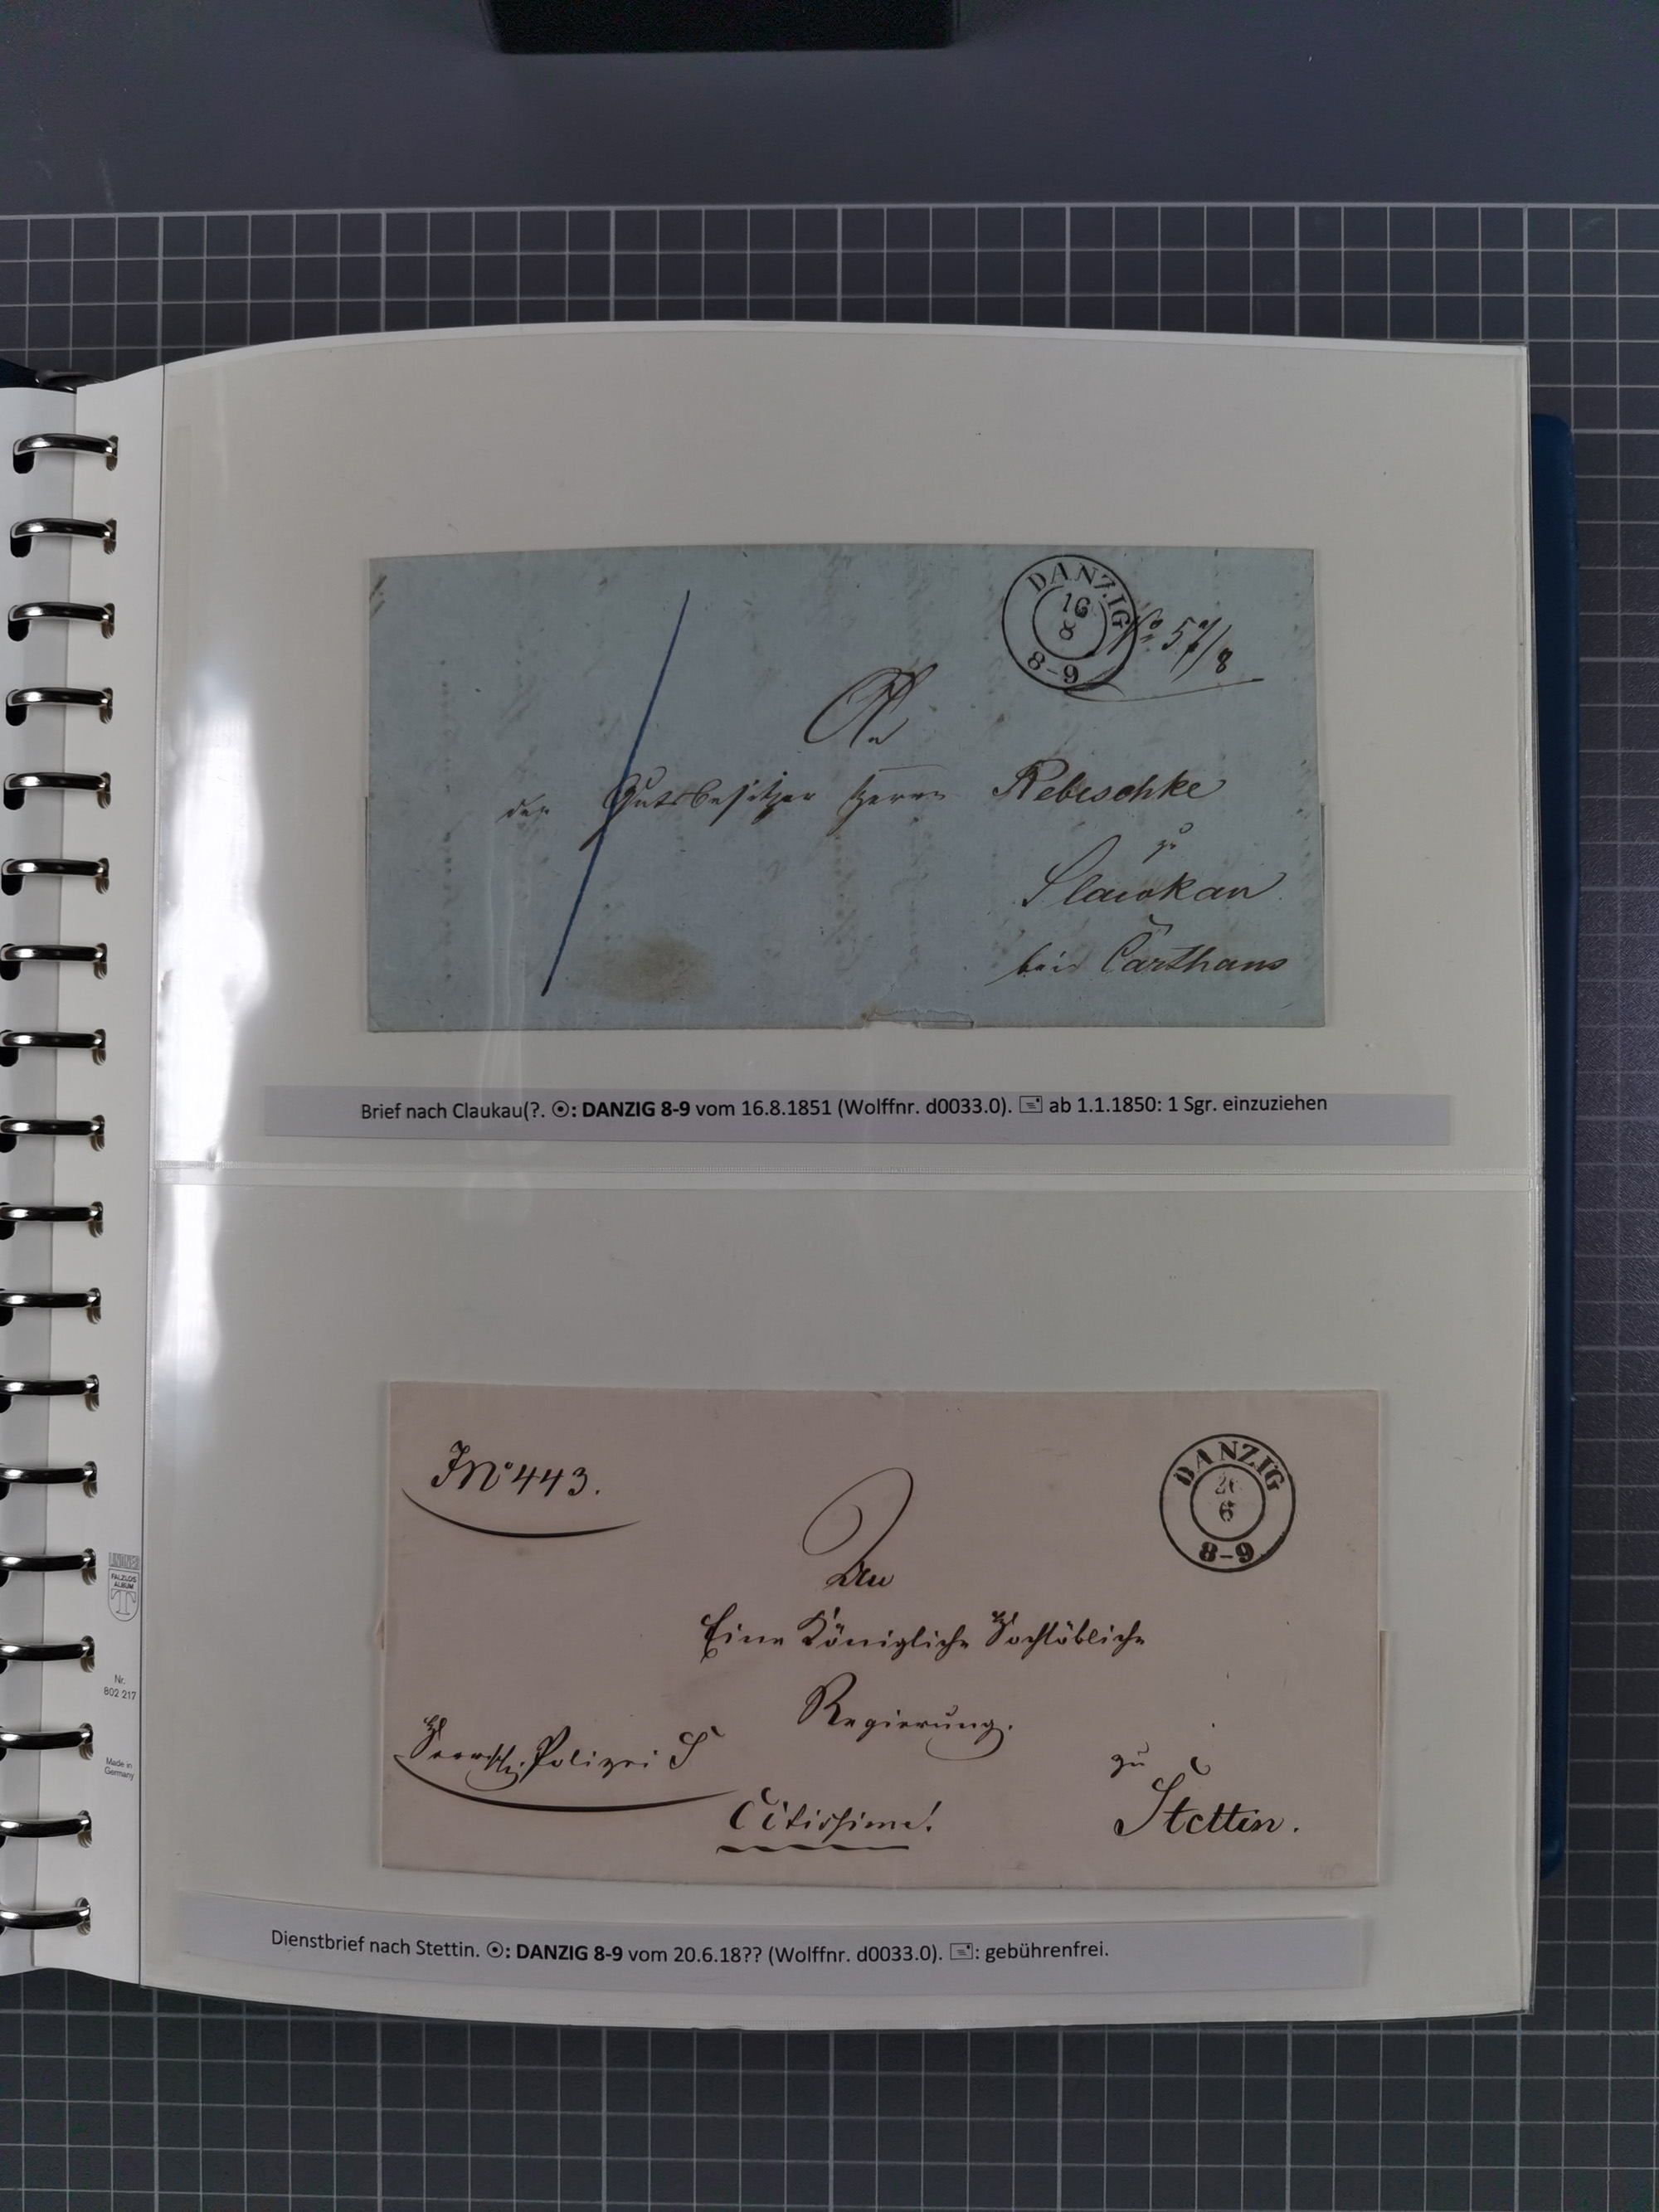 DANZIG
16
8
8-9
An
den Gutsbesitzer Herrn Rebeschke
zu
Slawkau
bei Carthaus
Brief nach Claukau(?. ☉: DANZIG 8-9 vom 16.8.1851 (Wolffnr. d0033.0). 🖃 ab 1.1.1850: 1 Sgr. einzuziehen
JNo 443.
DANZIG
6
8-9
An
Eine Königliche Hochlöbliche
Regierung.
Polizei S
zu
Citissime!
Stettin.
Dienstbrief nach Stettin. ☉: DANZIG 8-9 vom 20.6.18?? (Wolffnr. d0033.0). 🖃: gebührenfrei.
LINDNER
FALZLOS
ALBUM
T
Nr.
802 217
Made in
Germany